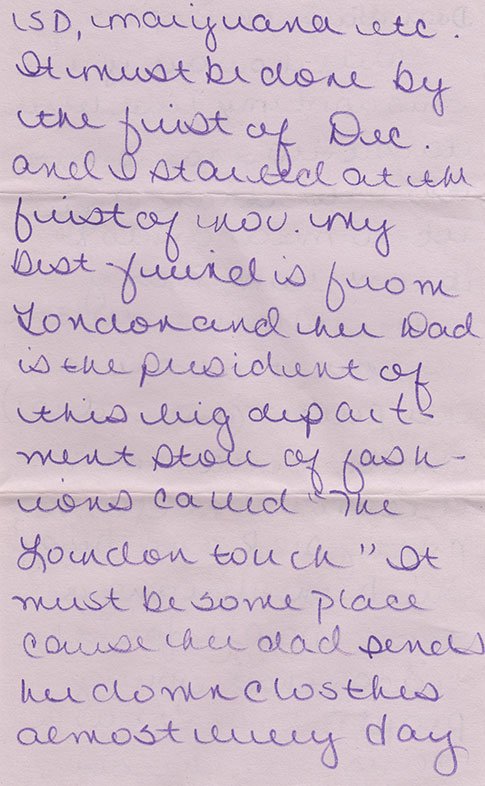 LSD, marijuana etc.
It must be done by
the first of Dec.
and I started at the
first of nov. My
Best friend is from
London and her Dad
is the president of
this big depart-
ment store of fash-
ions called "The
London touch" It
must be some place
cause her dad sends
her down closthes
almost every day